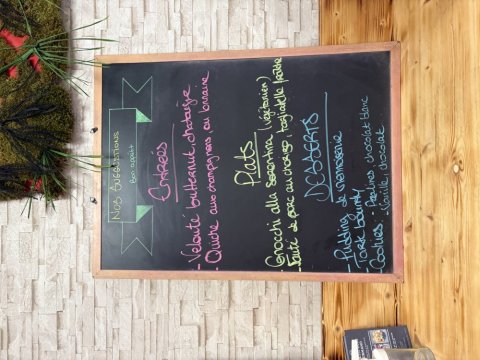 NOS SUGGESTIONS
Bon appétit
Entrées
- Velouté butternut, chataîgne
- Quiche aux champignons, ou lorraine
Plats
- Gnocchi alla sorrentina (végétarien)
- Sauté de porc au chorizo tagliatelle fraîche
DESSERTS
- Pudding de viennoiserie
- Tarte bounty
- Cookies : - Pralines chocolat blanc
- Vanille, chocolat